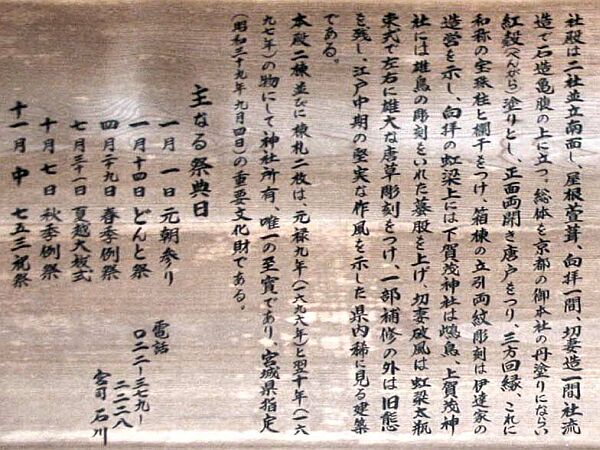 社殿は二社並立南面し、屋根萱茸、向拝一間、切妻造一間社流
造で石造亀腹の上に立つ。総体を京都の御本社の丹塗りにならい
紅殻(べんがら)塗りとし、正面両開き唐戸をつり、三方回縁、これに
和称の宝珠柱と欄干をつけ、箱棟の立引両紋彫刻は伊達家の
造営を示し、向拝の虹梁上には下賀茂神社は鴟鳥、上賀茂神
社には雄鳥の彫刻をいれた蟇股を上げ、切妻破風は虹梁太瓶
束式で左右に雄大な唐草彫刻をつけ、一部補修の外は旧態
を残し、江戸中期の堅実な作風を示した県内稀に見る建築
である。
本殿二棟並びに棟札二枚は、元禄九年(一六九六年)と翌十年(一六
九七年)の物にして神社所有、唯一の至宝であり、宮城県指定
(昭和三十九年九月四日)の重要文化財である。
主なる祭典日
一月一日元朝参り
一月十四日どんと祭
四月二十九日春季例祭
七月三十一日夏越大祓式
十月七日秋季例祭
十一月中七五三祝祭
電話
〇二二-三七九-
二二二八
宮司石川